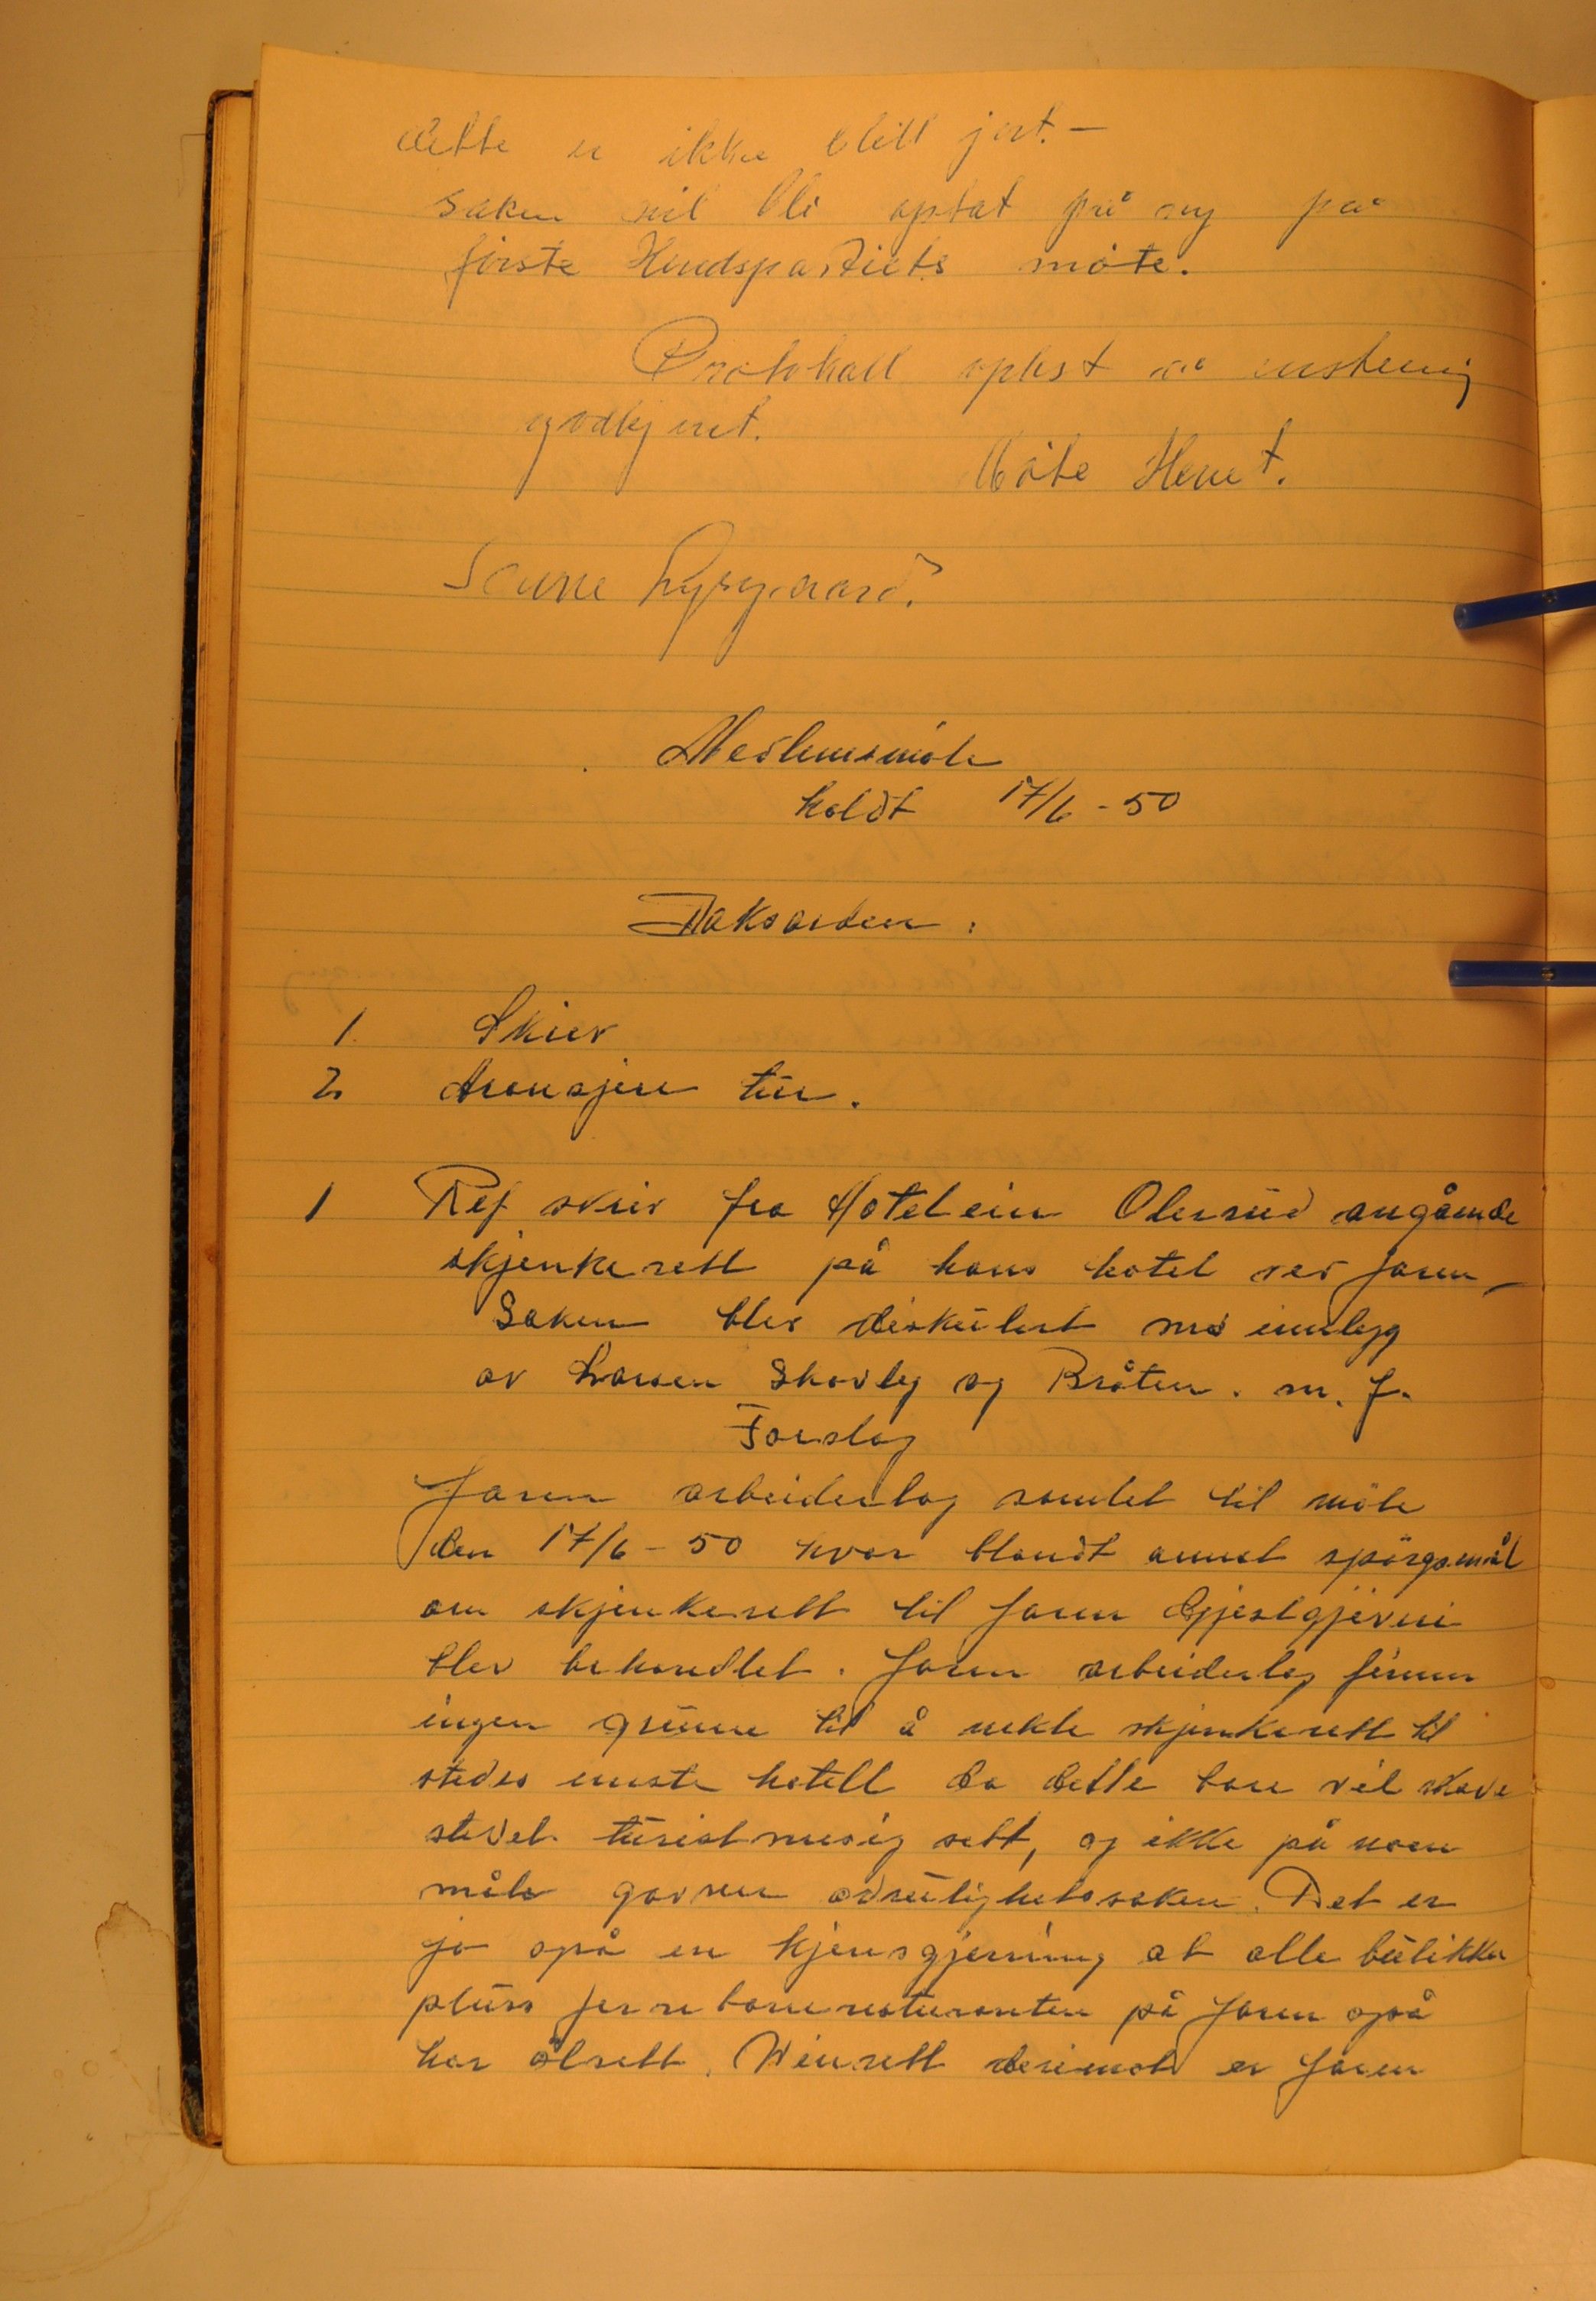 dette er ikke blitt jort. -
saken vil bli optat på ny på
förste Herredspartiets möte.
Protokall oplest og enstemig
godkjent.
Möte Hevet.
Lysgaard.
Medlemsmöte
holdt 17/6 - 50
Daksorden:
1. Skriv
2. Aronsjere tur.
1 Ref skriv fra Hoteleier Olerud angående
skjenkerett på hans hotel ved Jaren,
Saken blev diskutert med innlegg
av Larsen Skovly og Bråten. m. f.
Forslag
Jaren arbeiderlag samlet til möte
den 17/6 - 50 hvor blandt annet spörgsmål
om skjenkerett til Jaren Gjestgjeveri
blev behandlet. Jaren arbeiderlag finner
ingen grunn til å nekte skjenkerett til
stedes eneste hotell da dette bare vil skade
stedet turistmesig sett, og ikke på noen
måte gavner edruelighetssaken. Det er
jo også en kjensgjerning at alle butikker
pluss jernbanerestauranten på Jaren også
har ölrett. Vinrett derimot er Jaren